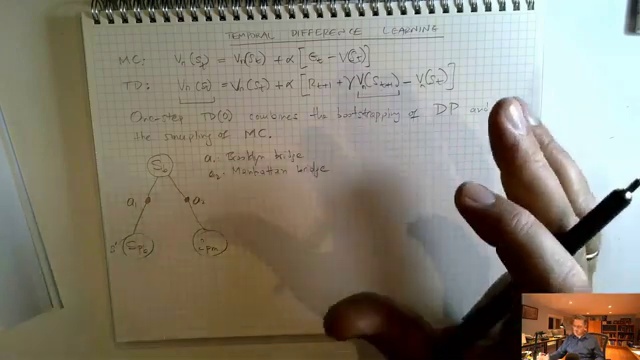 TEMPORAL DIFFERENCE LEARNING
MC: Vπ(St) = Vπ(St) + α [Gt − V(St)]
TD: Vπ(St) = Vπ(St) + α [Rt+1 + γ Vπ(St+1) − Vπ(St)]
One-step TD(0) combines the bootstrapping of DP and
the sampling of MC.
a1 Brooklyn bridge
a2 Manhattan bridge
a1
a2